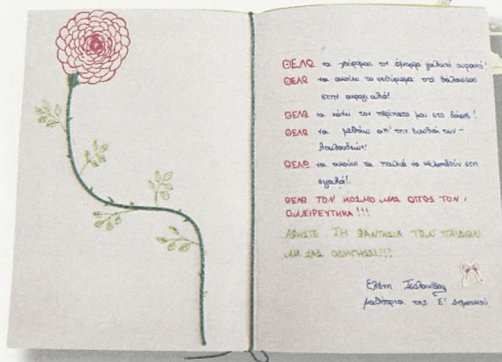 ΘΕΛΩ να χαίρομαι τον όμορφο γαλανό ουρανό!
ΘΕΛΩ να ακούω το ψιθύρισμα της θάλασσας
στην ακρογιαλιά!
ΘΕΛΩ να κάνω τον περίπατό μου στο δάσος!
ΘΕΛΩ να μεθάω απ' την ευωδιά των
λουλουδιών!
ΘΕΛΩ να ακούω τα πουλιά να κελαηδούν στη
φωλιά!
ΘΕΛΩ ΤΟΝ ΚΟΣΜΟ ΜΑΣ ΟΠΩΣ ΤΟΝ
ΟΝΕΙΡΕΥΤΗΚΑ!!!
ΑΦΗΣΤΕ ΤΗ ΦΑΝΤΑΣΙΑ ΤΩΝ ΠΑΙΔΙΩΝ
ΝΑ ΣΑΣ ΟΔΗΓΗΣΕΙ!!!
Ελένη
μαθήτρια της Ε' Δημοτικού